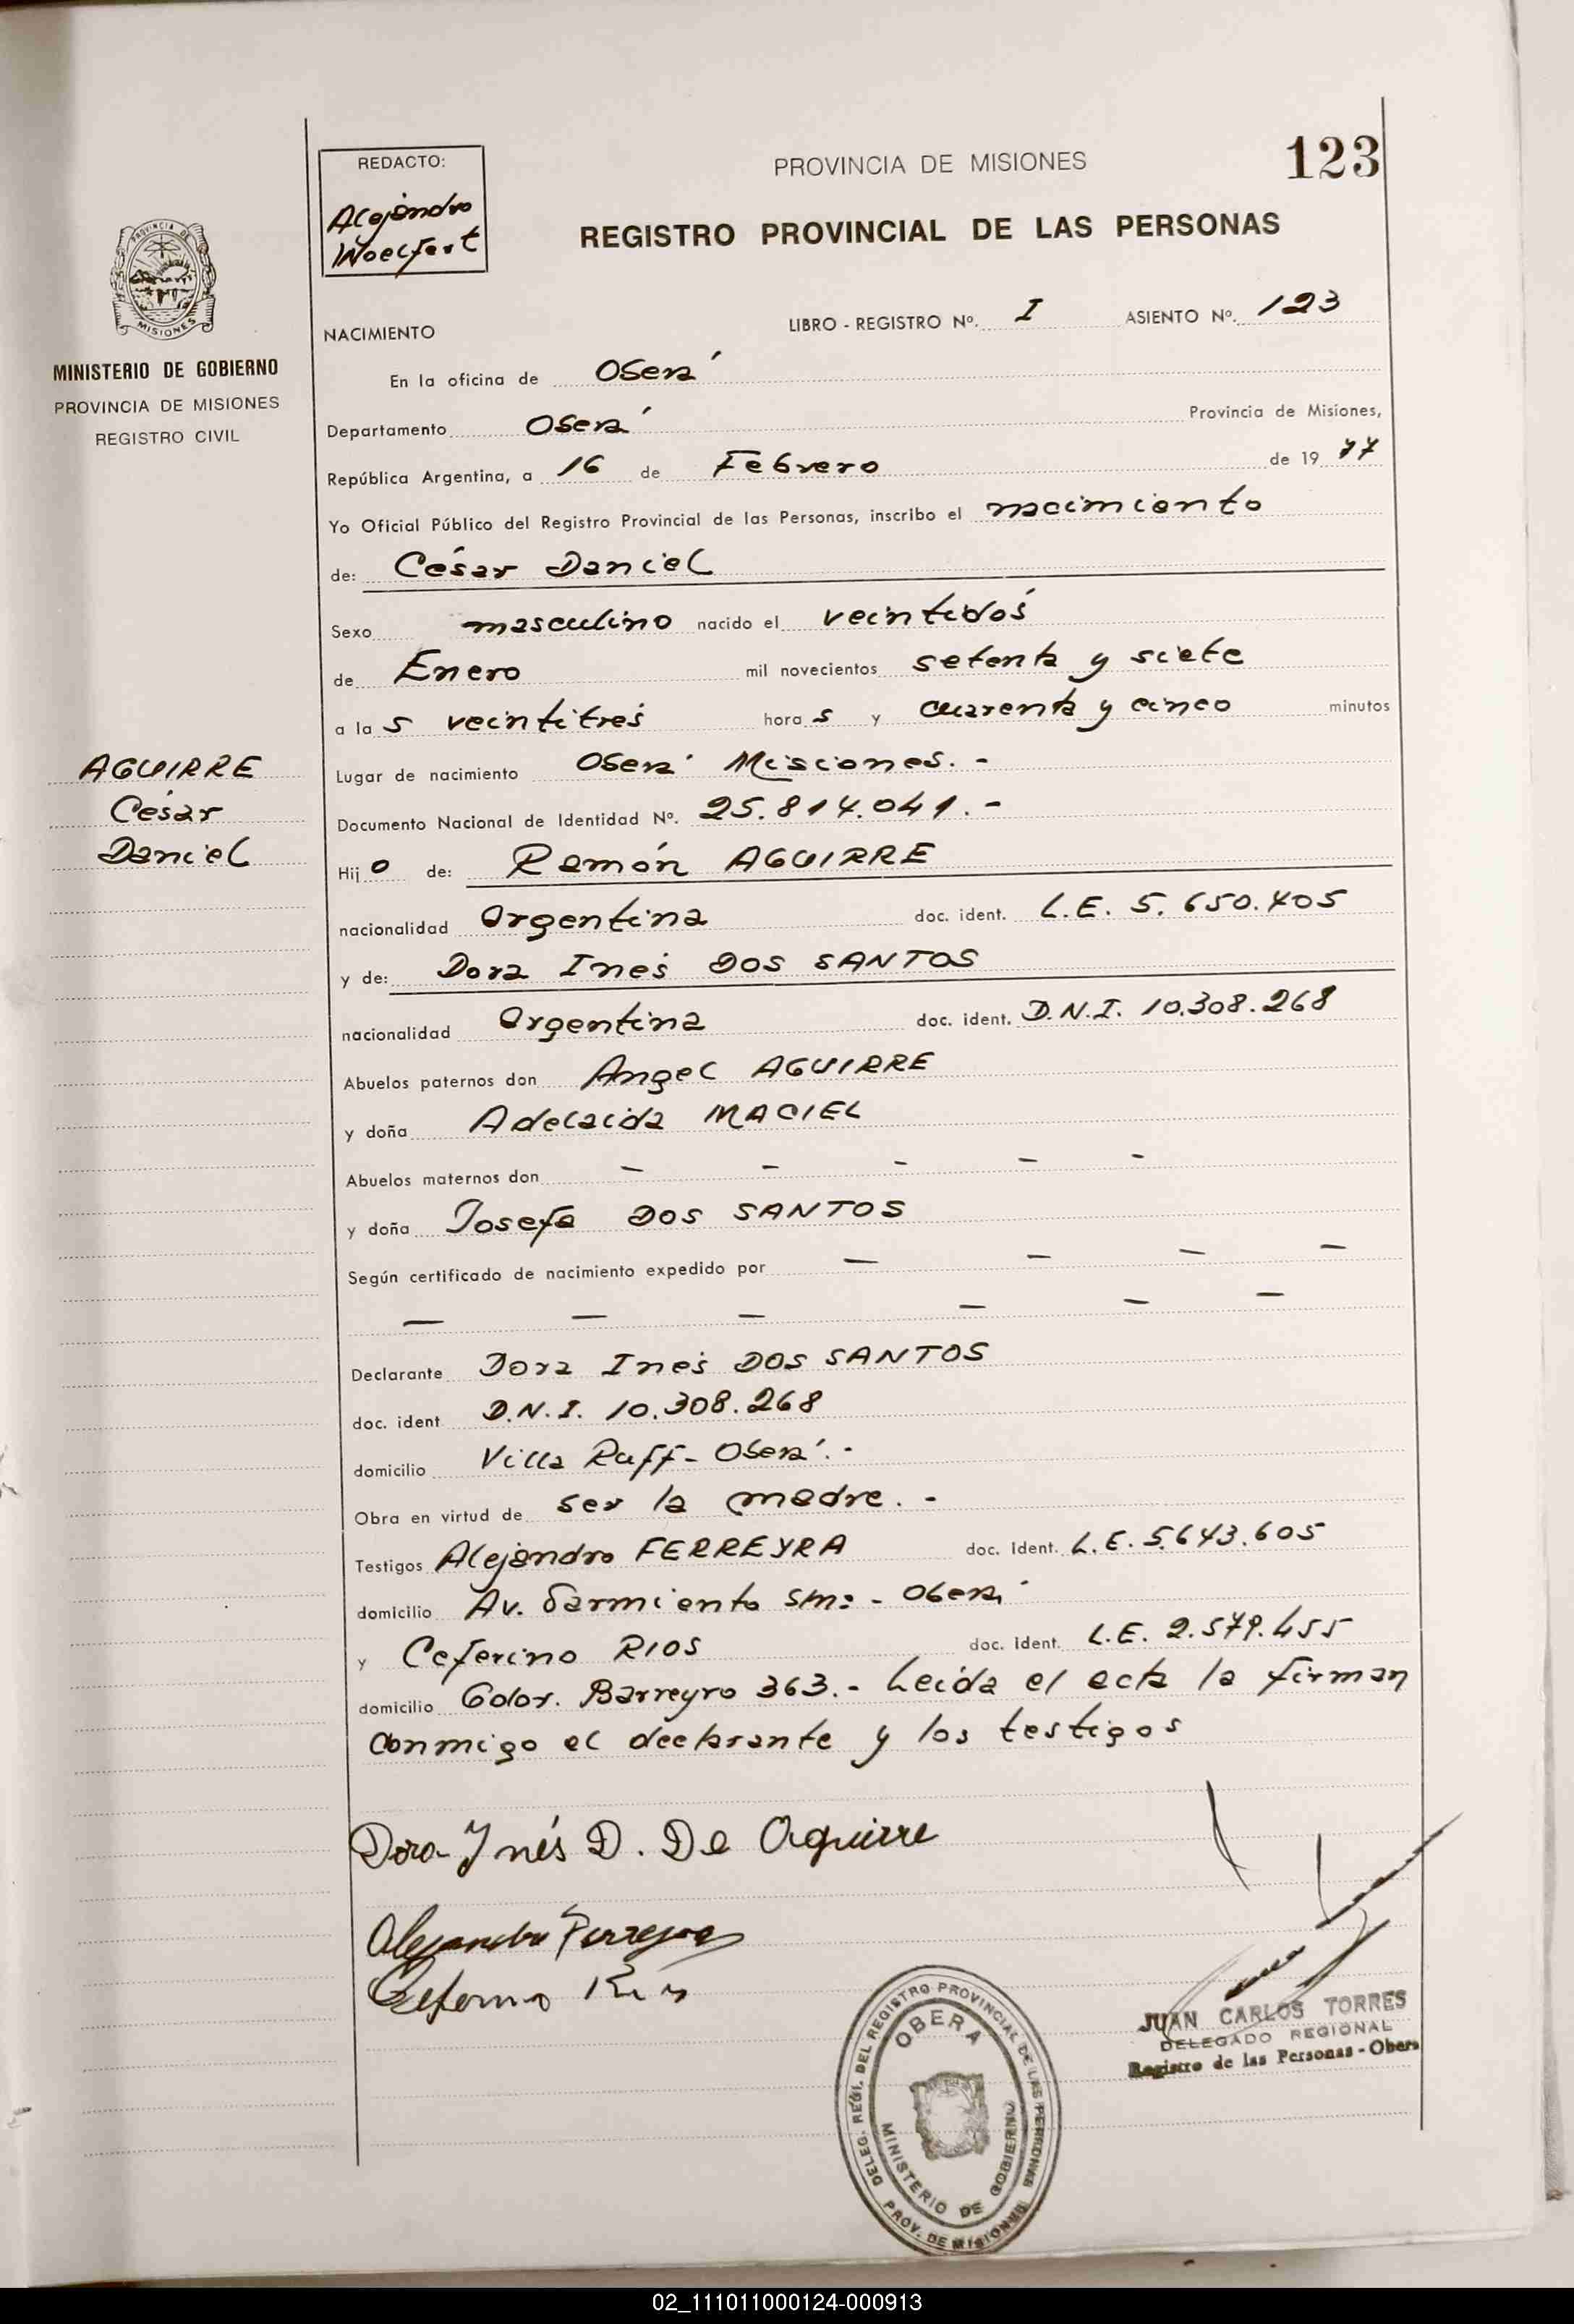 REDACTO:
Alejandro
Woelfert
PROVINCIA DE MISIONES
123
REGISTRO PROVINCIAL DE LAS PERSONAS
PROVINCIA DE
MISIONES
MINISTERIO DE GOBIERNO
PROVINCIA DE MISIONES
REGISTRO CIVIL
NACIMIENTO LIBRO - REGISTRO Nº. I ASIENTO Nº. 123
En la oficina de Oberá
Departamento Oberá Provincia de Misiones,
República Argentina, a 16 de Febrero de 19 77
Yo Oficial Público del Registro Provincial de las Personas, inscribo el nacimiento
de: César Daniel
Sexo masculino nacido el veintidós
de Enero mil novecientos setenta y siete
a las veintitrés horas y cuarenta y cinco minutos
AGUIRRE
César
Daniel
Lugar de nacimiento Oberá Misiones. -
Documento Nacional de Identidad Nº. 25.814.041. -
Hijo de: Ramón AGUIRRE
nacionalidad Argentina doc. ident. L.E. 5.650.405
y de: Dora Inés DOS SANTOS
nacionalidad Argentina doc. ident. D.N.I. 10.308.268
Abuelos paternos don Angel AGUIRRE
y doña Adelaida MACIEL
Abuelos maternos don - - - - -
y doña Josefa DOS SANTOS
Según certificado de nacimiento expedido por - - - -
- - - - - -
Declarante Dora Inés DOS SANTOS
doc. ident D.N.I. 10.308.268
domicilio Villa Ruff - Oberá. -
Obra en virtud de ser la madre. -
Testigos Alejandro FERREYRA doc. Ident. L.E. 5.643.605
domicilio Av. Sarmiento s/n: - Oberá
y Ceferino RIOS doc. Ident. L.E. 2.579.455
domicilio Gdor. Barreyro 363. - Leída el acta la firman
conmigo el declarante y los testigos
Dora Inés D. De Aguirre
Alejandro Ferreyra
Ceferino Rios
JUAN CARLOS TORRES
DELEGADO REGIONAL
Registro de las Personas - Obera
DELEG. REGI. DEL REGISTRO PROVINCIAL DE LAS PERSONAS
OBERA
MINISTERIO DE GOBIERNO
PROV. DE MISIONES
02_111011000124-000913